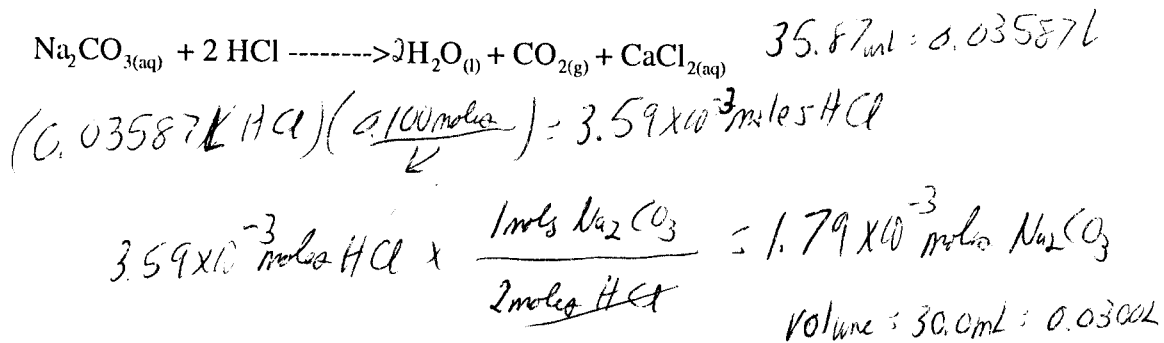 Na₂CO₃(aq) + 2 HCl --------> 2H₂O(l) + CO₂(g) + CaCl₂(aq) 35.87mL = 0.03587L
(0.03587L HCl)(0.100moles/L) = 3.59x10⁻³moles HCl
3.59x10⁻³moles HCl x 1mols Na₂CO₃/2moles HCl = 1.79x10⁻³ moles Na₂CO₃
volume = 30.0mL = 0.0300L